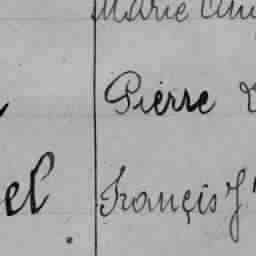 Marie
Pierre
el
François J